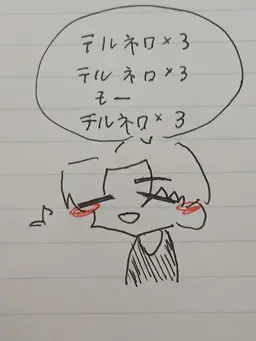 テルネロ×3
テルネロ×3
モー
チルネロ×3